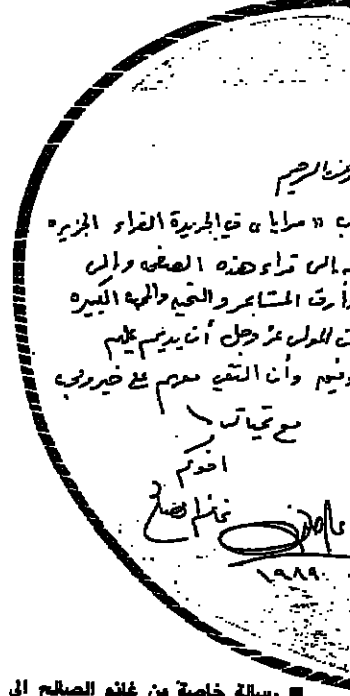 الرحيم
مرايا » في الجريدة الغراء الجزيره
الى قراء هذه الصفحه والى
وأرق المشاعر والتحيه والمحبه الكبيره
المولى عز وجل أن يديم عليهم
وأن التقي معهم على خير وحب
مع تحياتي
اخوكم
غانم الصالح
١٩٨٩
■ رسالة خاصة من غانم الصالح الى